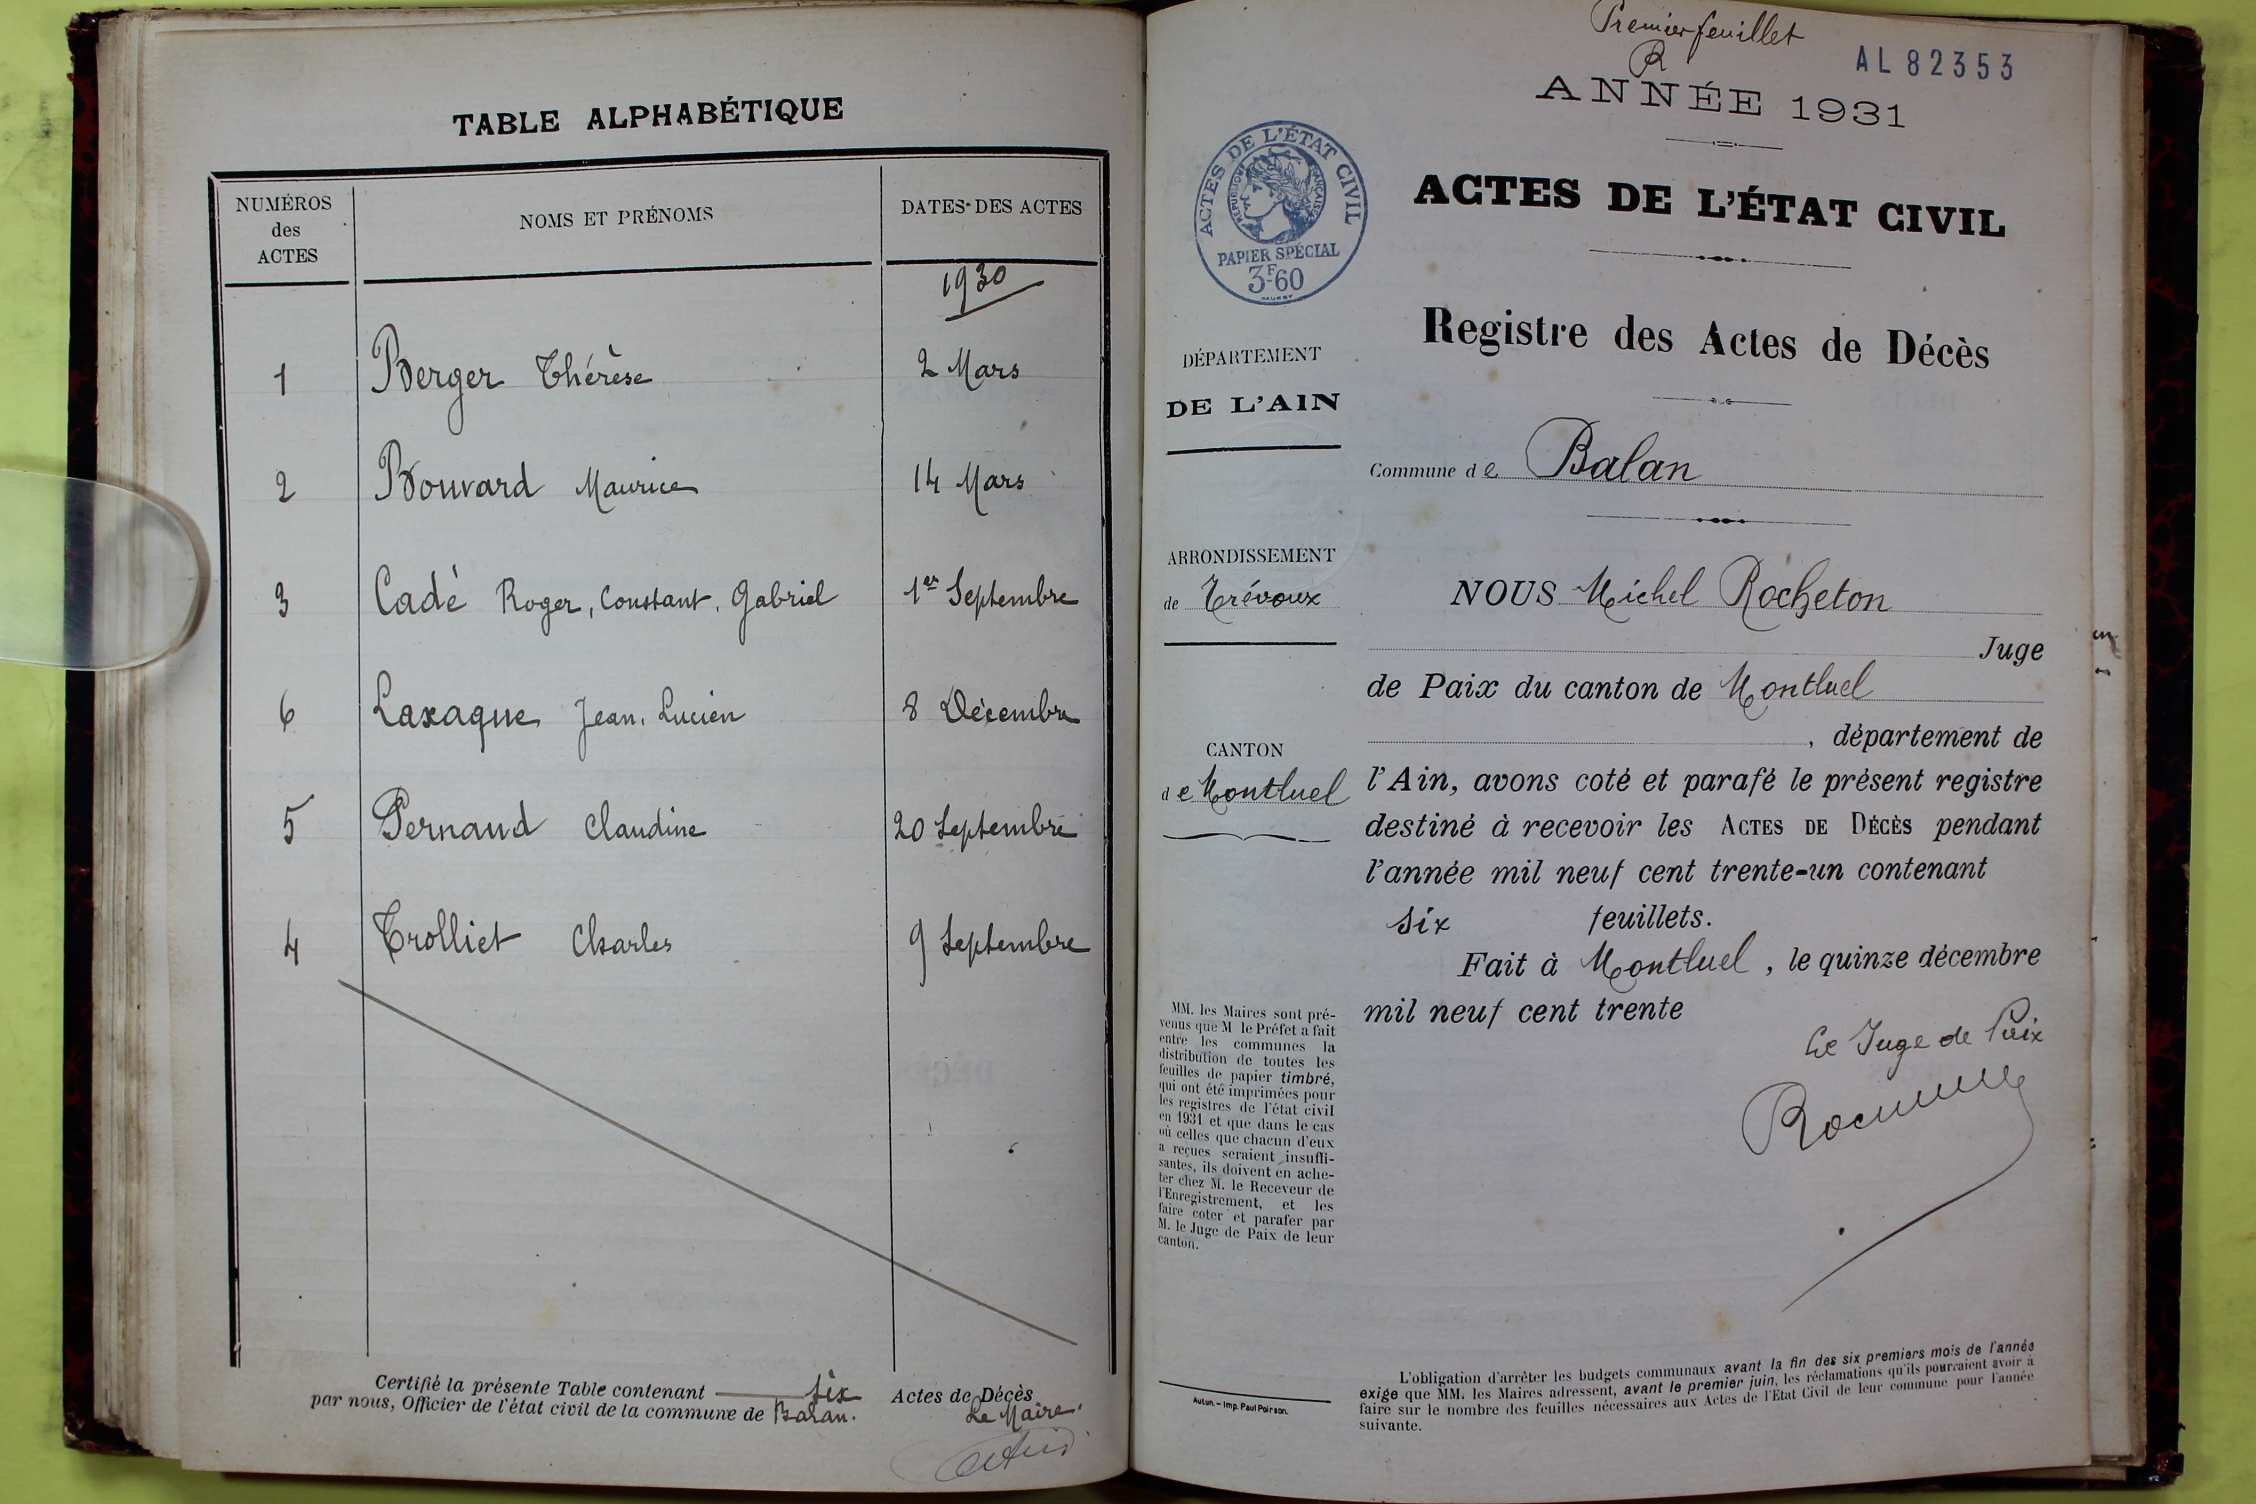 TABLE ALPHABÉTIQUE
NUMÉROS
des
ACTES
NOMS ET PRÉNOMS
DATES DES ACTES
1930
1 Berger Thérèse 2 Mars
2 Bouvard Maurice 14 Mars
3 Cadé Roger, Constant, Gabriel 1er Septembre
6 Laxague Jean, Lucien 8 Décembre
5 Pernaud Claudine 20 Septembre
4 Trolliet Charles 9 Septembre
Certifié la présente Table contenant six Actes de Décès
par nous, Officier de l'état civil de la commune de Balan.
Le Maire.
Premier feuillet
R
AL 82353
ANNÉE 1931
ACTES DE L'ÉTAT CIVIL
RÉPUBLIQUE FRANÇAISE
PAPIER SPÉCIAL
3F60
ACTES DE L'ÉTAT CIVIL
Registre des Actes de Décès
DÉPARTEMENT
DE L'AIN
Commune de Balan
ARRONDISSEMENT
de Trévoux
CANTON
de Montluel
NOUS Michel Rocheton
Juge
de Paix du canton de Montluel
, département de
l'Ain, avons coté et parafé le présent registre
destiné à recevoir les ACTES DE DÉCÈS pendant
l'année mil neuf cent trente-un contenant
six feuillets.
Fait à Montluel, le quinze décembre
mil neuf cent trente
Le Juge de Paix
MM. les Maires sont pré-
venus que M le Préfet a fait
entre les communes la
distribution de toutes les
feuilles de papier timbré,
qui ont été imprimées pour
les registres de l'état civil
en 1931 et que dans le cas
où celles que chacun d'eux
a reçues seraient insuffi-
santes, ils doivent en ache-
ter chez M. le Receveur de
l'Enregistrement, et les
faire coter et parafer par
M. le Juge de Paix de leur
canton.
Autun. – Imp. Paul Poirson.
L'obligation d'arrêter les budgets communaux avant la fin des six premiers mois de l'année
exige que MM. les Maires adressent, avant le premier juin, les réclamations qu'ils pourraient avoir à
faire sur le nombre des feuilles nécessaires aux Actes de l'Etat Civil de leur commune pour l'année
suivante.